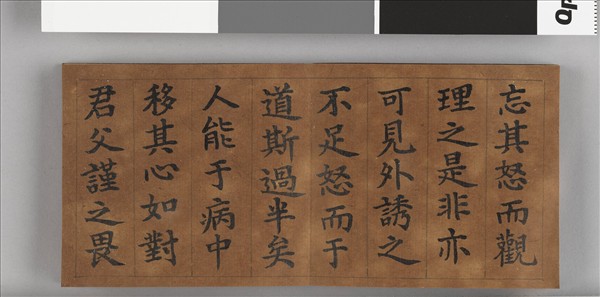 忘其怒而觀
理之是非亦
可見外誘之
不足怒而于
道斯過半矣
人能于病中
移其心如對
君父謹之畏